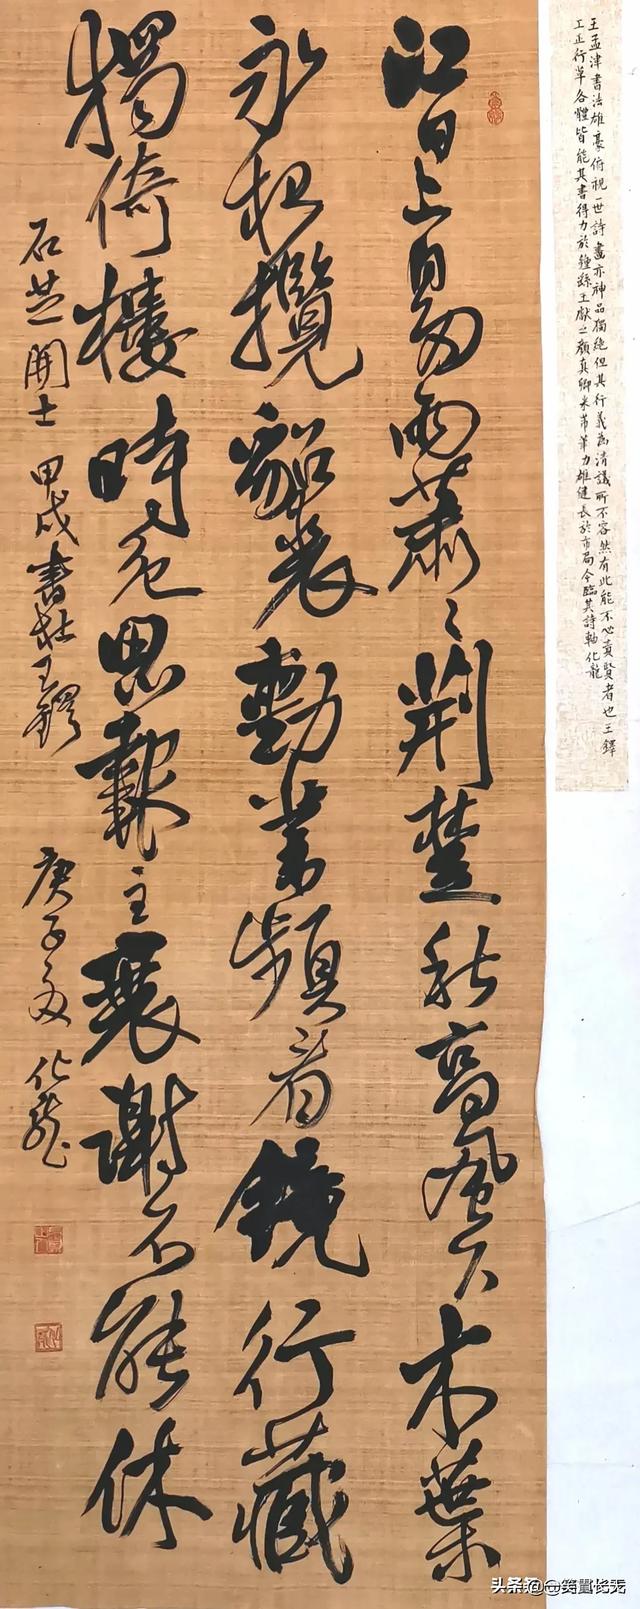 王孟津書法雄豪俯視一世詩畫亦神品獨絕但其行義為清議所不容然有此能不必責賢者也王鐸
工正行草各體皆能其書得力於鍾繇王獻之顏真卿米芾筆力雄健長於布局今臨其詩軸化龍
江日上易雨蕭〻荊楚秋高風下木葉
永夜攬貂裘勳業頻看鏡行藏
獨倚樓時危思報主衰謝不能休
石芝開士甲戌書杜王鐸
庚子夏化龍
头条 @